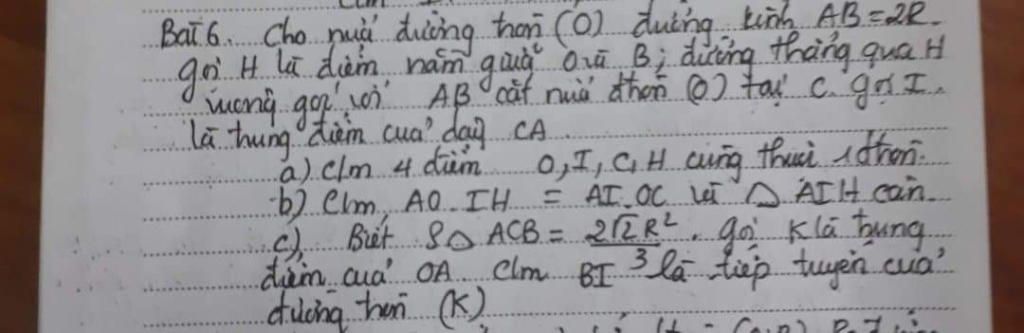 Bài 6. Cho nửa đường tròn (O) đường kính AB=2R.
gọi H là điểm nằm giữa O và B; đường thẳng qua H
vuông góc với AB cắt nửa đtròn (O) tại C. gọi I
là trung điểm của dây CA
a) C/m 4 điểm O, I, C, H cùng thuộc 1 đtròn.
b) C/m AO. IH = AI. OC và △ AIH cân
c), Biết S△ ACB = 2√2R²/3. gọi K là trung
điểm của OA C/m BI là tiếp tuyến của
đường tròn (K)